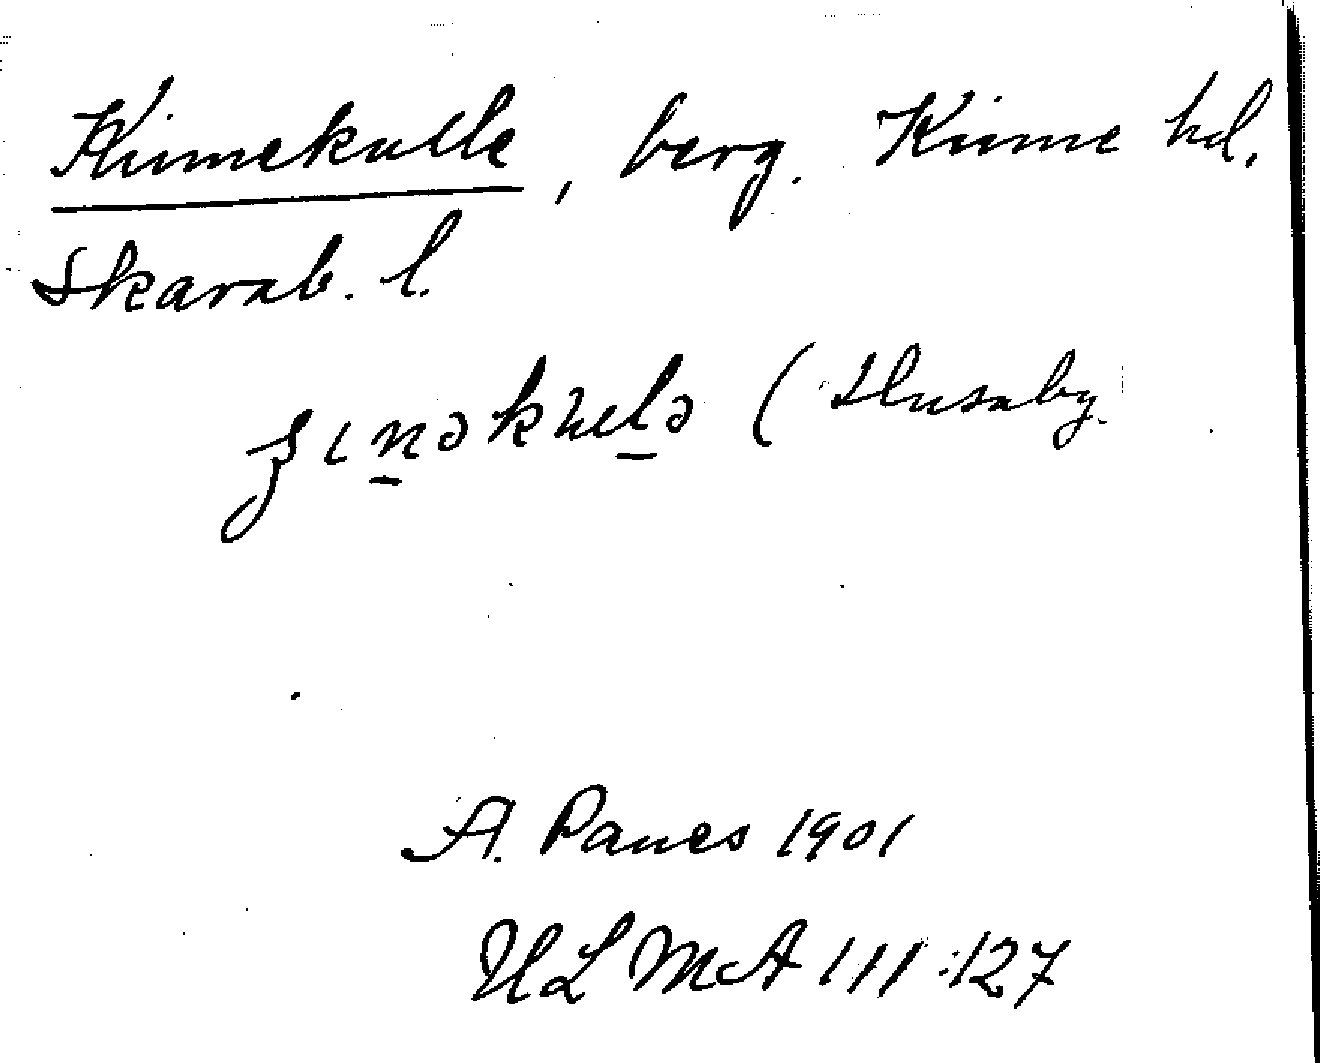 Kinnekulle, berg. Kinne hd.
Skarab. l.
(Husaby
A. Panes 1901
ULMA 111:127